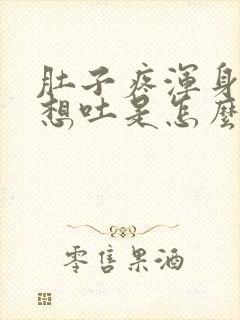 肚子疼渾身
想吐是怎麼
零售果酒